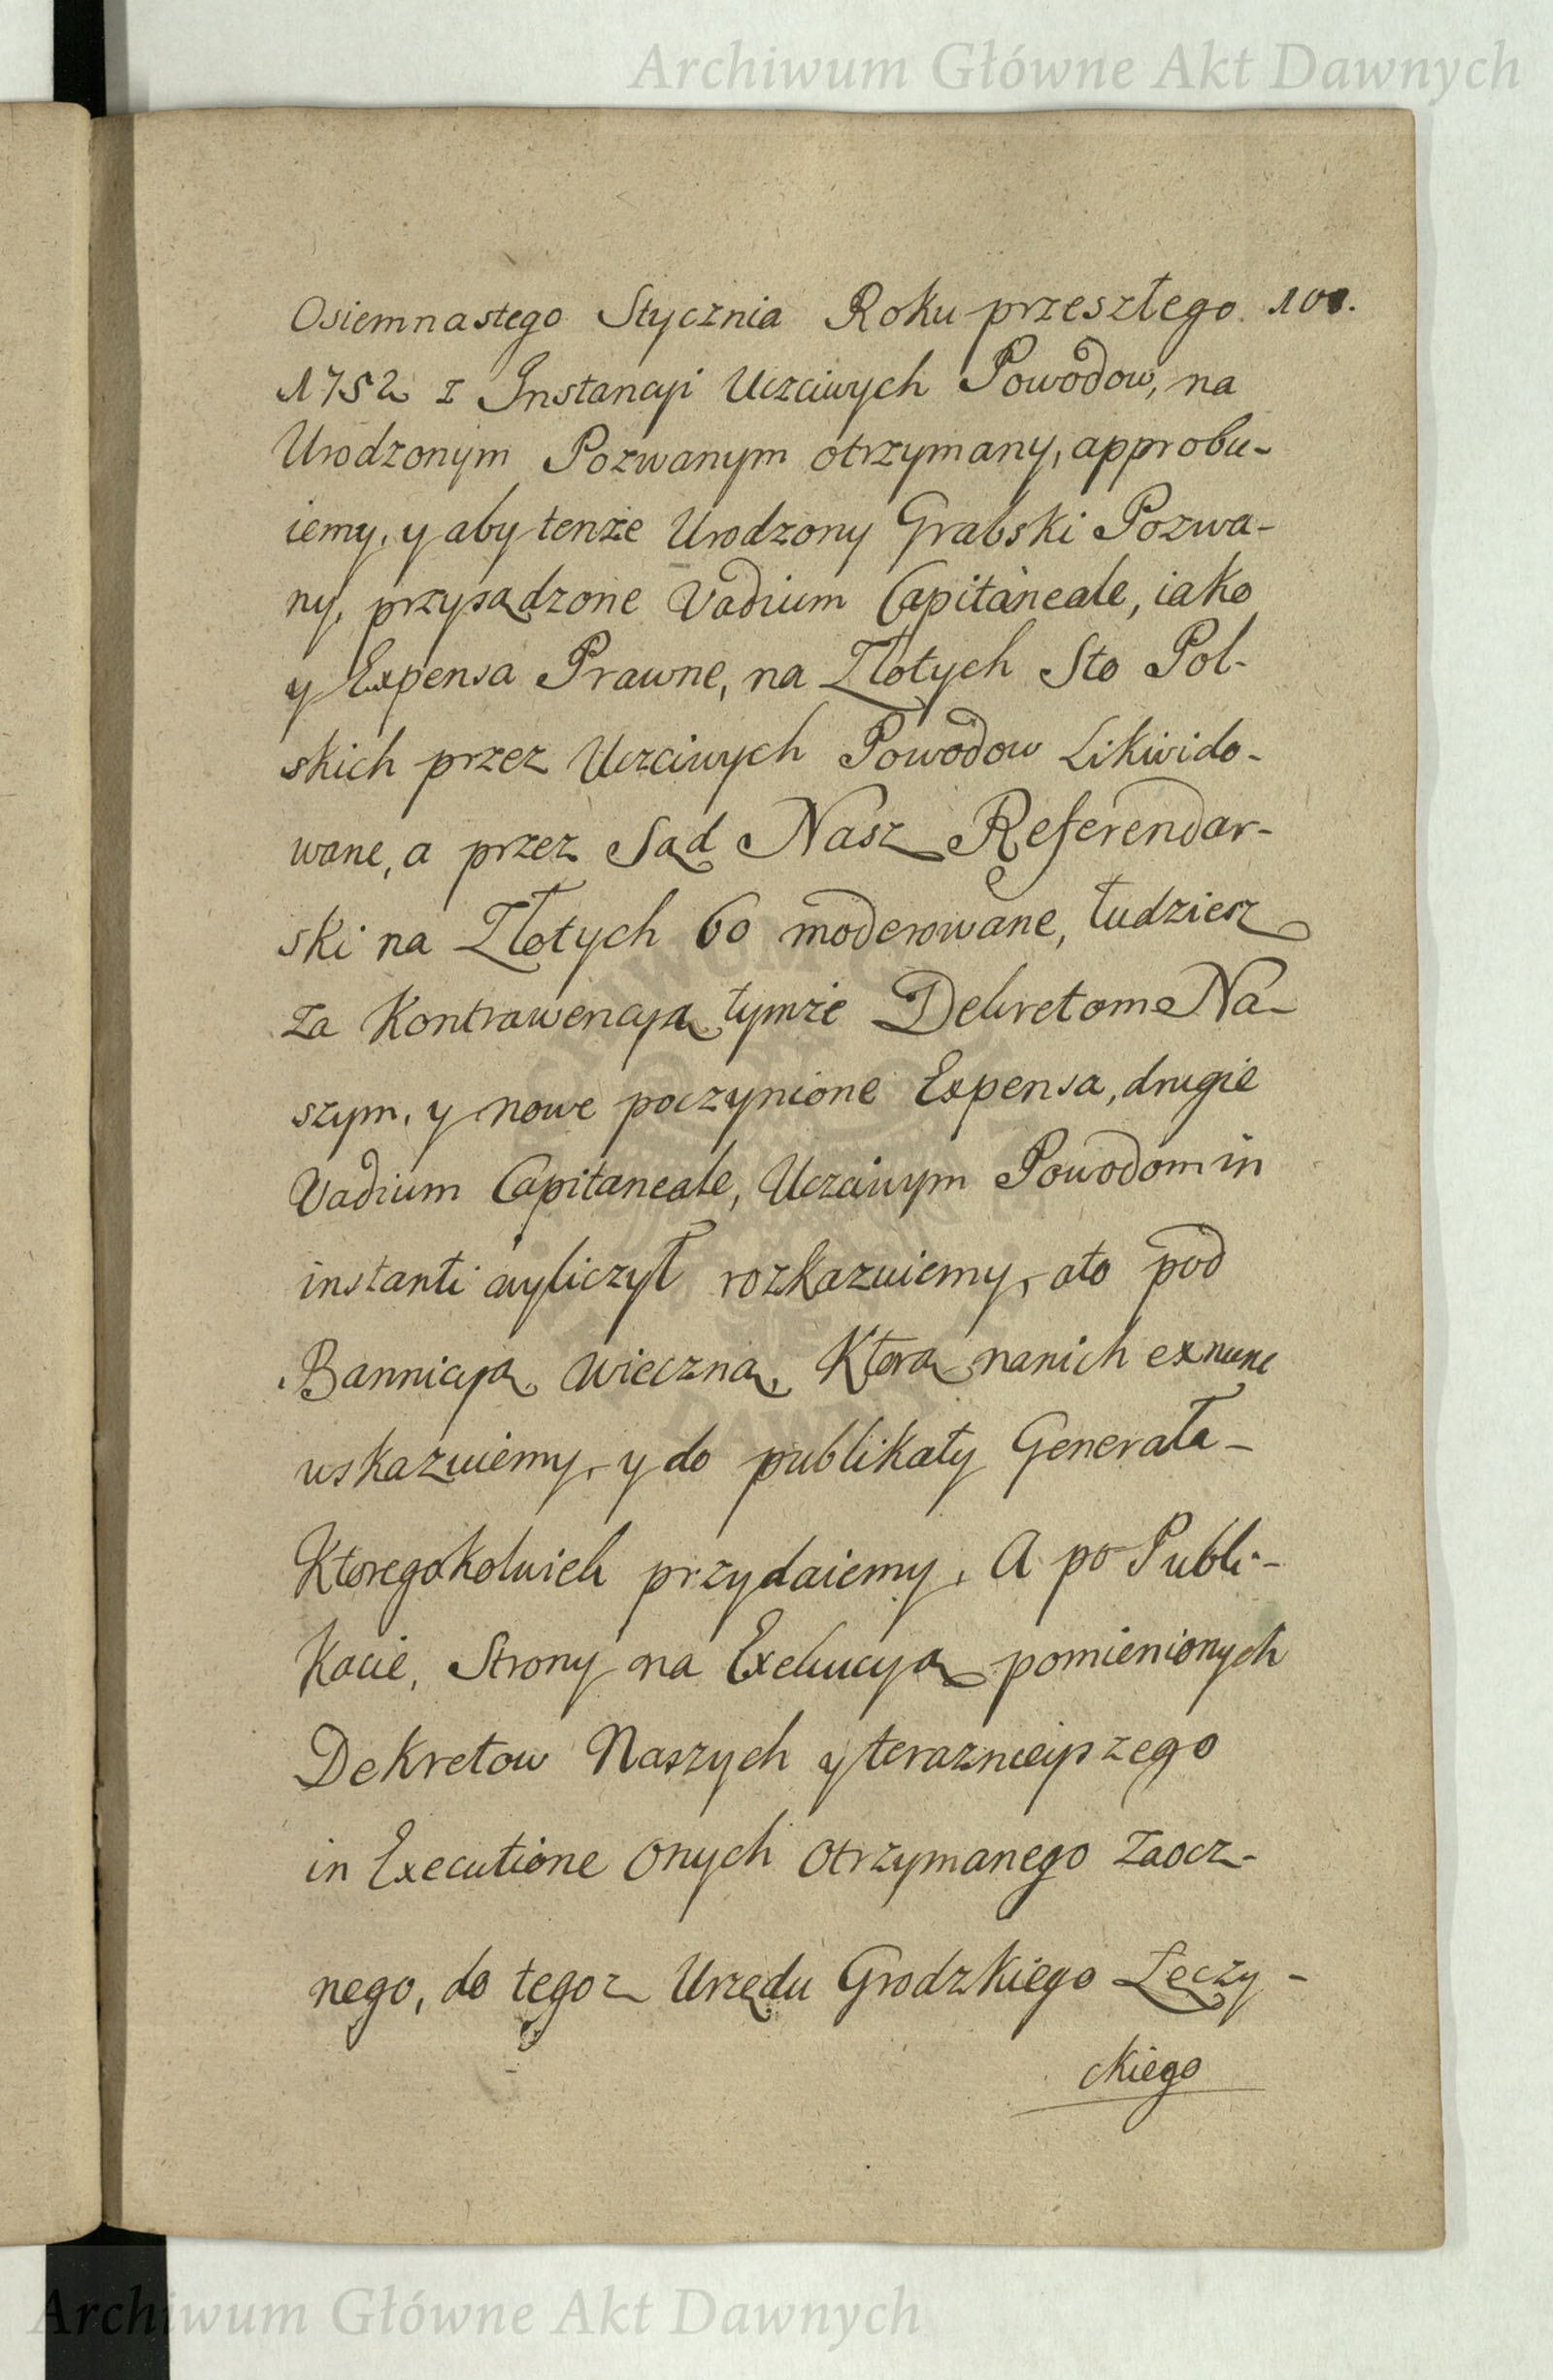 Archiwum Główne Akt Dawnych
Osiemnastego Stycznia Roku przeszłego 101.
1752 z Instancyi Uczciwych Powodow, na
Urodzonym Pozwanym otrzymany, approbu-
iemy, y aby tenże Urodzony Grabski Pozwa-
ny, przysądzone Vadium Capitaneale, iako
y Expensa Prawne, na Złotych Sto Pol-
skich przez Uczciwych Powodow Likwido-
wane, a przez Sąd Nasz Referendar-
ski na Złotych 60 moderowane, tudziesz
za Kontrawencyą tymże Dekretom Na-
szym, y nowe poczynione Expensa, drugie
Vadium Capitaneale, Uczciwym Powodom in
instanti wyliczył rozkazuiemy, a to pod
Bannicyą wieczną, Ktorą na nich ex nunc
wskazuiemy, y do publikaty Generała
Ktoregokolwiek przydaiemy, A po Publi-
Kacie, Strony na Exekucyą pomienionych
Dekretow Naszych y teraznieyszego
in Executione onych otrzymanego zaocz-
nego, do tegoz Urzędu Grodzkiego Łęczy-
ckiego
Archiwum Główne Akt Dawnych